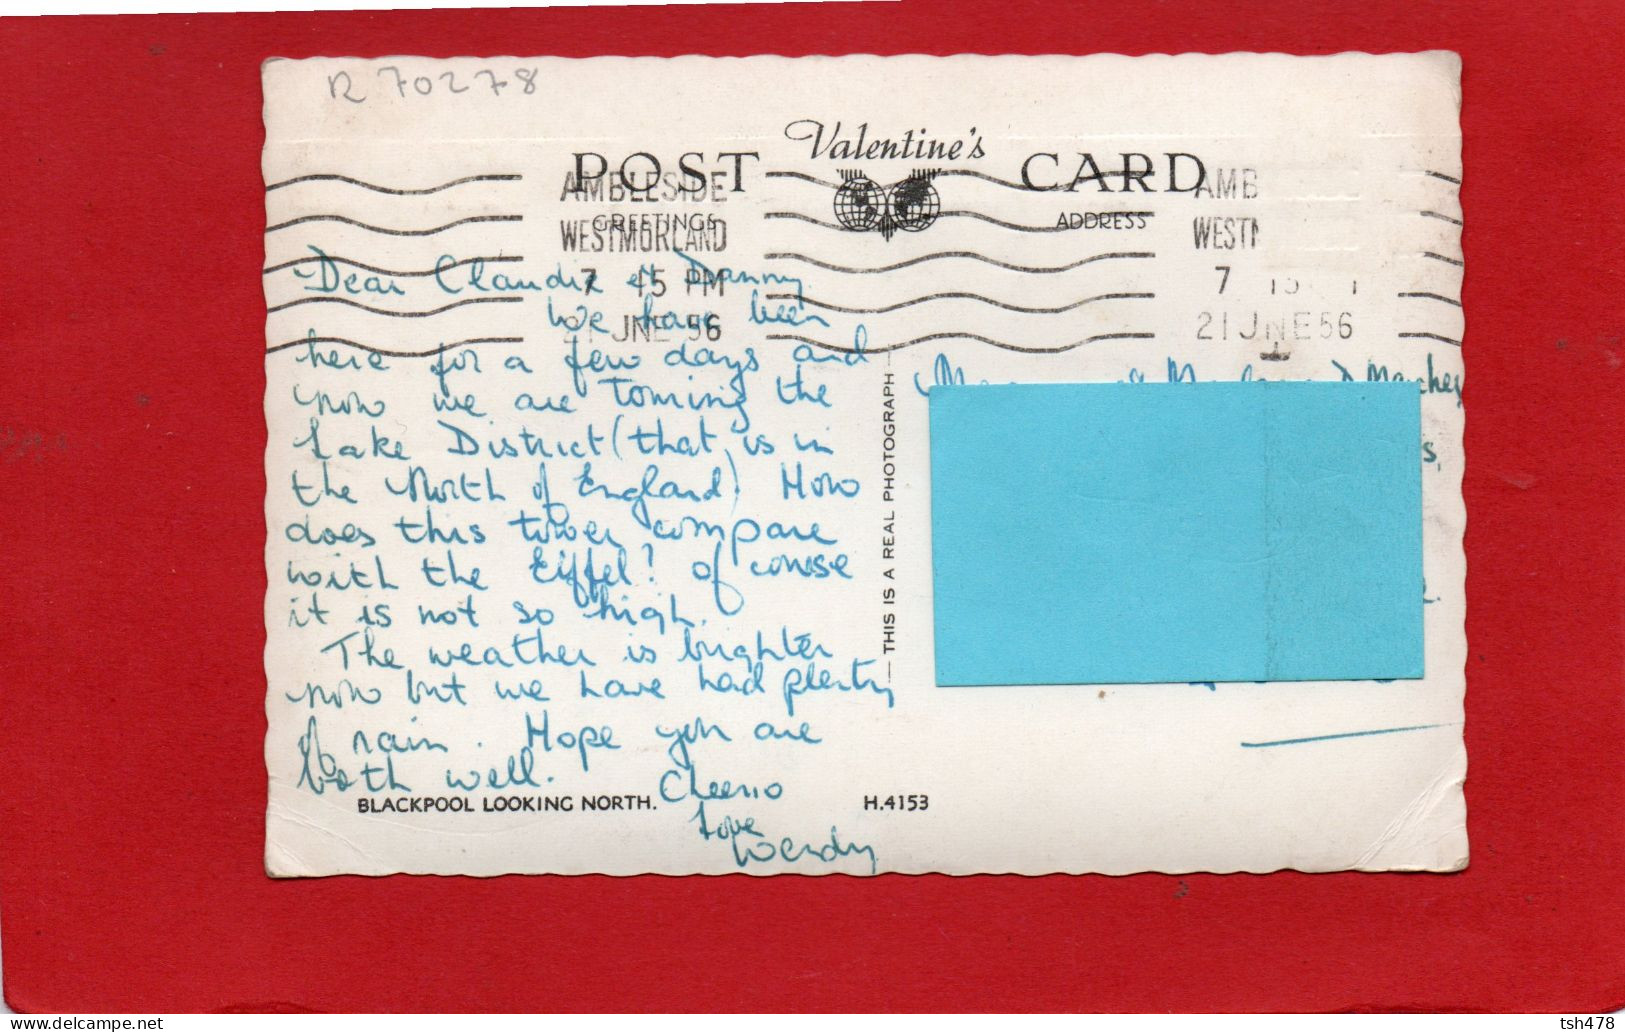 R 70278
Valentine's
POST CARD
AMBLESIDE
WESTMORLAND
7 15 PM
21 JNE 56
AMB
WEST
7 15
21 JNE 56
GREETINGS
ADDRESS
Dear Claudie et Danny
We have been
here for a few days and
now we are touring the
Lake District (that is in
the North of England). How
does this tower compare
with the Eiffel? Of course
it is not so high.
The weather is brighter
now but we have had plenty
of rain. Hope you are
both well.
Cheerio
Love
Wendy
BLACKPOOL LOOKING NORTH.
H.4153
THIS IS A REAL PHOTOGRAPH
delcampe.net
tsh478